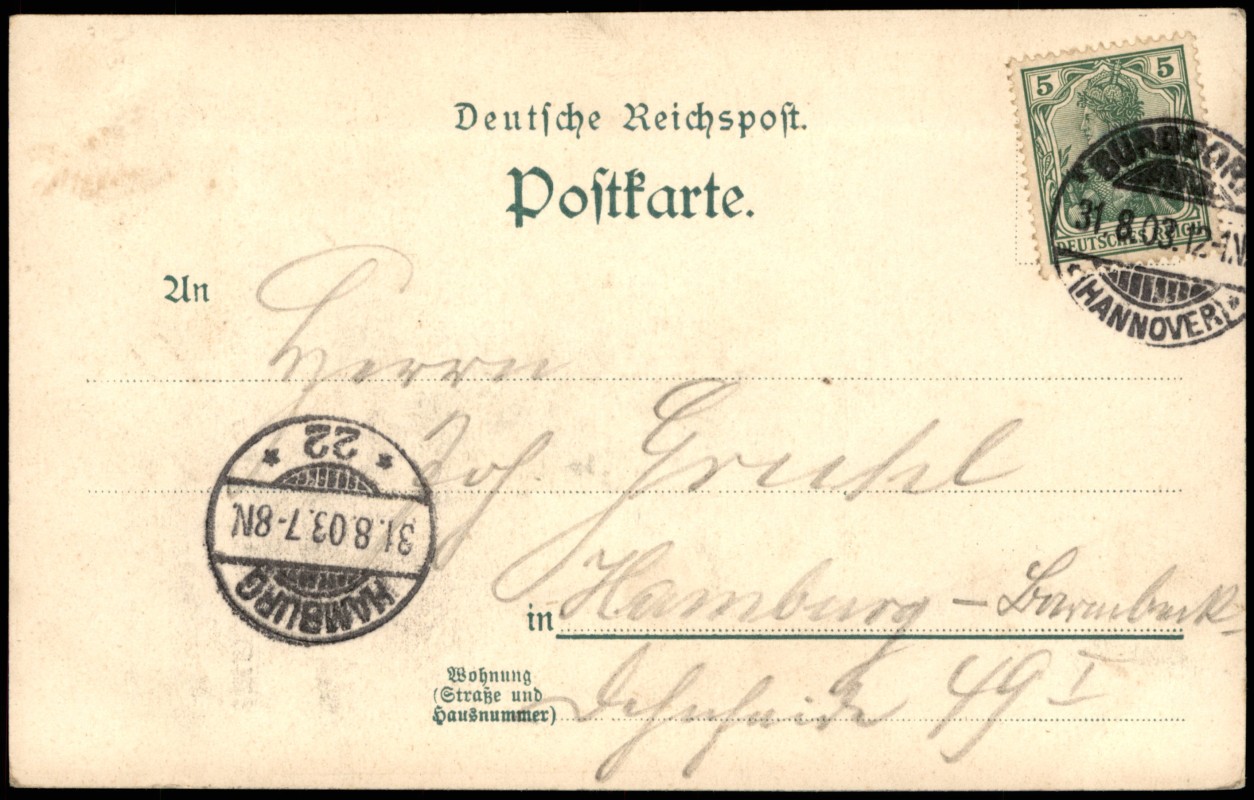 Deutsche Reichspost.
Postkarte.
5 5
DEUTSCHES REICH
BURGDORF
31.8.03.12-1N
* (HANNOVER) *
An
Herrn
Joh.
* 22 *
31.8.03.7-8N.
HAMBURG
in Hamburg - Barmbeck
Wohnung
(Straße und
Hausnummer)
Dehnhaide 49 I